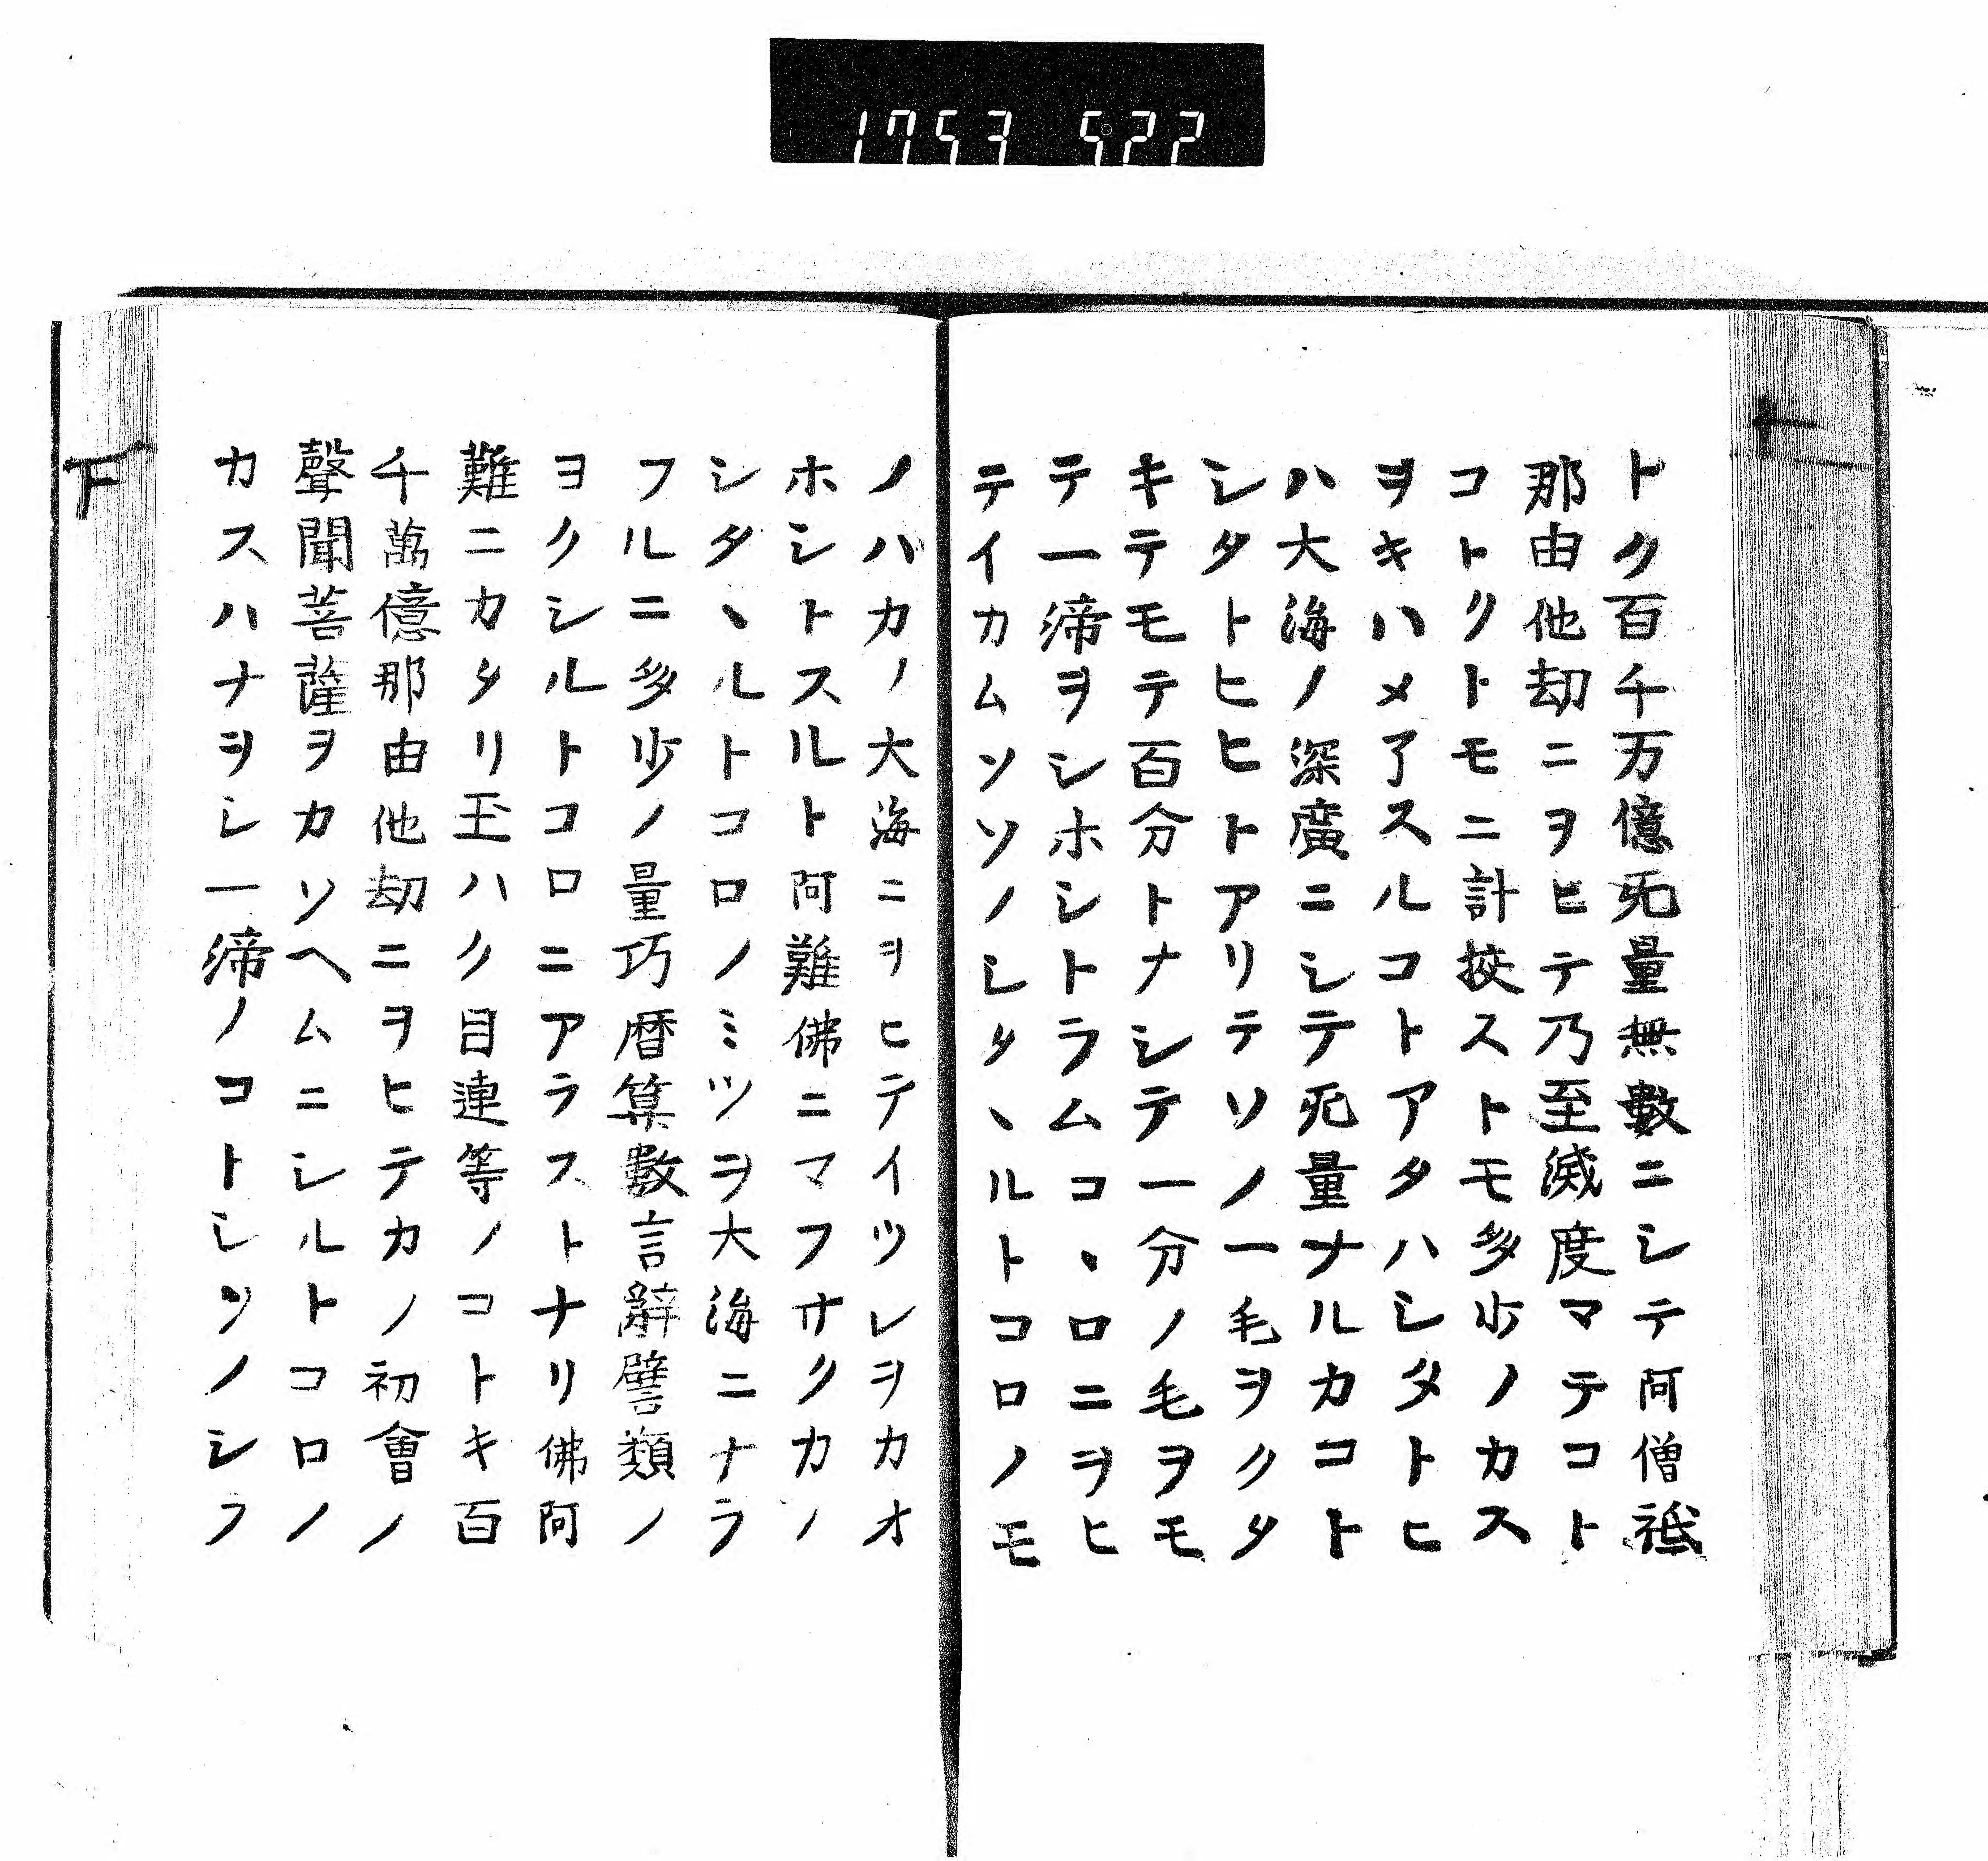 1753 522
トク百千万億旡量無數ニシテ阿僧祇
那由他刧ニヲヒテ乃至滅度マテコト
コトクトモニ計挍ストモ多少ノカス
ヲキハメ了スルコトアタハシタトヒ
ハ大海ノ深廣ニシテ旡量ナルカコト
シタトヒヒトアリテソノ一毛ヲクタ
キテモテ百分トナシテ一分ノ毛ヲモ
テ一渧ヲシホシトラムコヽロニヲヒ
テイカムソソノシタヽルトコロノモ
ノハカノ大海ニヲヒテイツレヲカオ
ホシトスルト阿難佛ニマフサクカノ
シタヽルトコロノミツヲ大海ニナラ
フルニ多少ノ量巧暦算數言辭譬類ノ
ヨクシルトコロニアラストナリ佛阿
難ニカタリ玉ハク目連等ノコトキ百
千萬億那由他刧ニヲヒテカノ初會ノ
聲聞菩薩ヲカソヘムニシルトコロノ
カスハナヲシ一渧ノコトシソノシフ
下